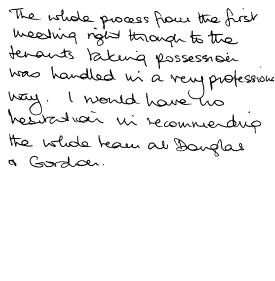 The whole process from the first
meeting right through to the
tenants taking possession
was handled in a very professional
way. I would have no
hesitation in recommending
the whole team at Douglas
& Gordon.